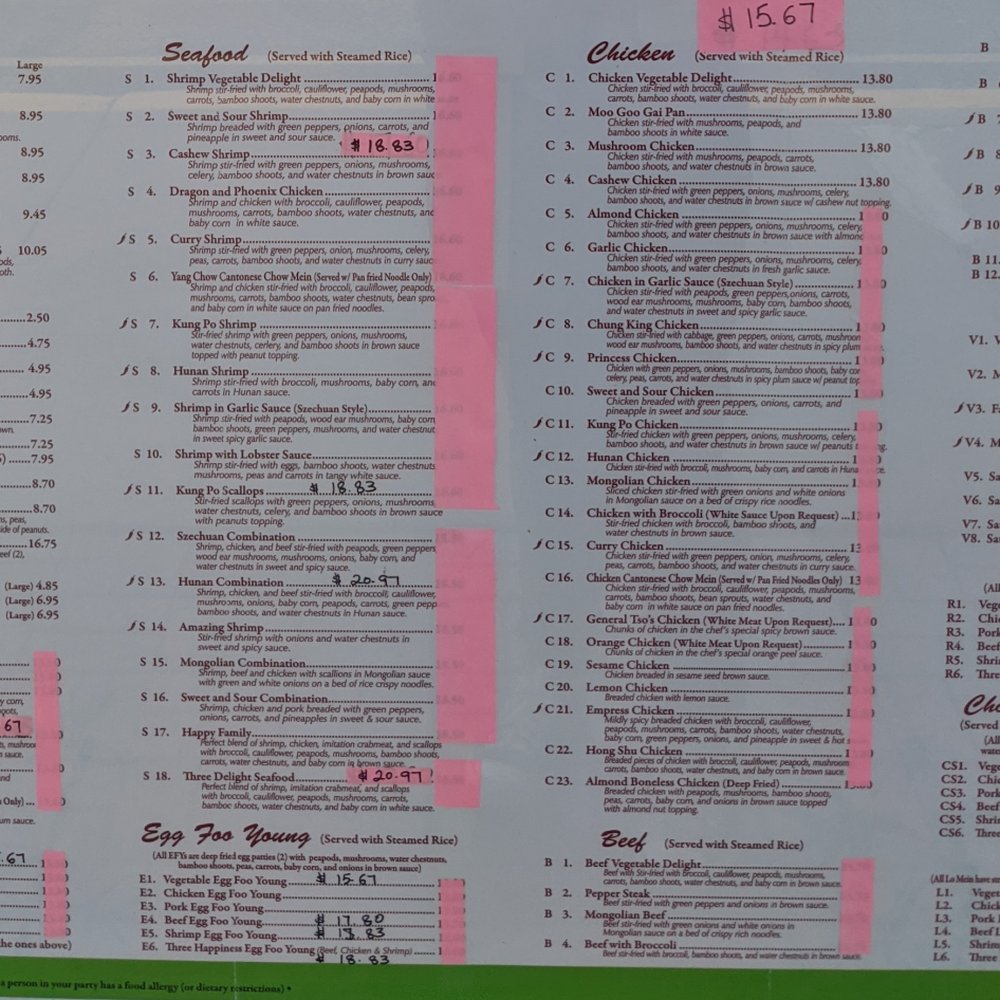 $ 15.67
Large
7.95
8.95
8.95
8.95
9.45
10.05
2.50
4.75
4.95
4.95
7.25
7.25
7.95
8.70
8.70
ide of peanuts.
16.75
(Large) 4.85
(Large) 6.95
(Large) 6.95
67
Only)
um sauce.
.67
the ones above)
Seafood (Served with Steamed Rice)
S 1. Shrimp Vegetable Delight
Shrimp stir-fried with broccoli, cauliflower, peapods, mushrooms,
carrots, bamboo shoots, water chestnuts, and baby corn in white
S 2. Sweet and Sour Shrimp
Shrimp breaded with green peppers, onions, carrots, and
pineapple in sweet and sour sauce.
$ 18.83
S 3. Cashew Shrimp
Shrimp stir-fried with green peppers, onions, mushrooms,
celery, bamboo shoots, and water chestnuts in brown sauc
S 4. Dragon and Phoenix Chicken
Shrimp and chicken with broccoli, cauliflower, peapods,
mushrooms, carrots, bamboo shoots, water chestnuts, and
baby corn in white sauce.
S 5. Curry Shrimp
Shrimp stir-fried with green peppers, onion, mushrooms, celery,
peas, carrots, bamboo shoots, and water chestnuts in curry sauc
S 6. Yang Chow Cantonese Chow Mein (Served w/ Pan fried Noodle Only)
Shrimp and chicken stir-fried with broccoli, cauliflower, peapods,
mushrooms, carrots, bamboo shoots, water chestnuts, bean spro
and baby corn in white sauce on pan fried noodles.
S 7. Kung Po Shrimp
Stir-fried shrimp with green peppers, onions, mushrooms,
water chestnuts, cerlery, and bamboo shoots in brown sauce
topped with peanut topping.
S 8. Hunan Shrimp
Shrimp stir-fried with broccoli, mushrooms, baby corn, and
carrots in Hunan sauce.
S 9. Shrimp in Garlic Sauce (Szechuan Style)
Shrimp stir-fried with peapods, wood ear mushrooms, baby corn
bamboo shoots, green peppers, mushrooms, and water chestnut
in sweet spicy garlic sauce.
S 10. Shrimp with Lobster Sauce
Shrimp stir-fried with eggs, bamboo shoots, water chestnuts
mushrooms, peas and carrots in tangy white sauce.
S 11. Kung Po Scallops $ 18.83
Stir-fried scallops with green peppers, onions, mushrooms,
water chestnuts, celery, and bamboo shoots in brown sauce
with peanuts topping.
S 12. Szechuan Combination
Shrimp, chicken, and beef stir-fried with peapods, green peppers
wood ear mushrooms, mushrooms, onions, baby corn, and
water chestnuts in sweet and spicy sauce.
S 13. Hunan Combination $ 20.97
Shrimp, chicken, and beef stir-fried with broccoli, cauliflower,
mushrooms, onions, baby corn, peapods, carrots, green pepp
bamboo shoots, and water chestnuts in Hunan sauce.
S 14. Amazing Shrimp
Stir-fried shrimp with onions and water chestnuts in
sweet and spicy sauce.
S 15. Mongolian Combination
Shrimp, beef and chicken with scallions in Mongolian sauce
with green and white onions on a bed of rice crispy noodles.
S 16. Sweet and Sour Combination
Shrimp, chicken and pork breaded with green peppers,
onions, carrots, and pineapples in sweet & sour sauce.
S 17. Happy Family
Perfect blend of shrimp, chicken, imitation crabmeat, and scallops
with broccoli, cauliflower, peapods, mushrooms, bamboo shoots,
carrots, water chestnuts, and baby corn in brown sauce.
S 18. Three Delight Seafood $ 20.97
Perfect blend of shrimp, imitation crabmeat, and scallops
with broccoli, cauliflower, peapods, mushrooms, carrots,
bamboo shoots, water chestnuts, and baby corn in white sauce.
Egg Foo Young (Served with Steamed Rice)
(All EFYs are deep fried egg patties (2) with peapods, mushrooms, water chestnuts,
bamboo shoots, peas, carrots, baby corn, and onions in brown sauce)
E1. Vegetable Egg Foo Young $ 15.67
E2. Chicken Egg Foo Young
E3. Pork Egg Foo Young
E4. Beef Egg Foo Young $ 17.80
E5. Shrimp Egg Foo Young $ 18.83
E6. Three Happiness Egg Foo Young (Beef, Chicken & Shrimp)
$ 18.83
Chicken (Served with Steamed Rice)
C 1. Chicken Vegetable Delight 13.80
Chicken stir-fried with broccoli, cauliflower, peapods, mushrooms,
carrots, bamboo shoots, water chestnuts, and baby corn in white sauce.
C 2. Moo Goo Gai Pan 13.80
Chicken stir-fried with mushrooms, peapods, and
bamboo shoots in white sauce.
C 3. Mushroom Chicken 13.80
Chicken stir-fried with mushrooms, peapods, carrots,
bamboo shoots, and water chestnuts in brown sauce.
C 4. Cashew Chicken 13.80
Chicken stir-fried with green peppers, onions, mushrooms, celery,
bamboo shoots, and water chestnuts in brown sauce w/ cashew nut topping.
C 5. Almond Chicken
Chicken stir-fried with green peppers, onions, mushrooms, celery
bamboo shoots, and water chestnuts in brown sauce with almond
C 6. Garlic Chicken
Chicken stir-fried with green peppers, onions, mushrooms, celery,
bamboo shoots, and water chestnuts in fresh garlic sauce.
C 7. Chicken in Garlic Sauce (Szechuan Style)
Chicken stir-fried with peapods, green peppers,onions, carrots,
wood ear mushrooms, mushrooms, baby corn, bamboo shoots,
and water chestnuts in sweet and spicy garlic sauce.
C 8. Chung King Chicken
Chicken stir-fried with cabbage, green peppers, onions, carrots, mushroom
wood ear mushrooms, bamboo shoots, and water chestnuts in spicy plum
C 9. Princess Chicken
Chicken with green peppers, onions, mushrooms, bamboo shoots, baby co
celery, peas, carrots, and water chestnuts in spicy plum sauce w/ peanut top
C 10. Sweet and Sour Chicken
Chicken breaded with green peppers, onions, carrots, and
pineapple in sweet and sour sauce.
C 11. Kung Po Chicken
Stir-fried chicken with green peppers, onions, mushrooms, celery,
bamboo shoots, and water chestnuts in brown sauce w/ peanuts t
C 12. Hunan Chicken
Chicken stir-fried with broccoli, mushrooms, baby corn, and carrots in Huna
C 13. Mongolian Chicken
Sliced chicken stir-fried with green onions and white onions
in Mongolian sauce on a bed of crispy rice noodles.
C 14. Chicken with Broccoli (White Sauce Upon Request)
Stir-fried chicken with broccoli, bamboo shoots, and
water chestnuts in brown sauce.
C 15. Curry Chicken 13
Chicken stir-fried with green peppers, onion, mushrooms, celery,
peas, carrots, bamboo shoots, and water chestnuts in curry sauce.
C 16. Chicken Cantonese Chow Mein (Served w/ Pan Fried Noodles Only) 13
Chicken stir-fried with broccoli, cauliflower, peapods, mushrooms,
carrots, bamboo shoots, bean sprouts, water chestnuts, and
baby corn in white sauce on pan fried noodles.
C 17. General Tso's Chicken (White Meat Upon Request)
Chunks of chicken in the chef's special spicy brown sauce.
C 18. Orange Chicken (White Meat Upon Request)
Chunks of chicken in the chef's special orange peel sauce.
C 19. Sesame Chicken
Chicken breaded in sesame seed brown sauce.
C 20. Lemon Chicken
Breaded chicken with lemon sauce.
C 21. Empress Chicken
Mildly spicy breaded chicken with broccoli, cauliflower,
peapods, mushrooms, carrots, bamboo shoots, water chestnuts,
baby corn, green peppers, onions, and pineapple in sweet & hot s
C 22. Hong Shu Chicken
Breaded pieces of chicken with broccoli, cauliflower, peapods, mushroom
carrots, bamboo shoots, water chestnuts, and baby corn in brown sauce.
C 23. Almond Boneless Chicken (Deep Fried)
Breaded chicken with peapods, mushrooms, bamboo shoots,
peas, carrots, baby corn, and onions in brown sauce topped
with almond nut topping.
Beef (Served with Steamed Rice)
B 1. Beef Vegetable Delight
Beef with Stir-fried with broccoli, cauliflower, peapods, mushrooms,
carrots, bamboo shoots, water chestnuts, and baby corn in brown sauce.
B 2. Pepper Steak
Beef stir-fried with green peppers and onions in brown sauce.
B 3. Mongolian Beef
Beef stir-fried with green onions and white onions in
Mongolian sauce on a bed of crispy rich noodles.
B 4. Beef with Broccoli
Beef stir-fried with broccoli, bamboo shoots, and water chestnuts in brown sauce.
B
B
B 7
B 8
B 9
B 10
B 11.
B 12.
V1. V
V2. M
V3. F
V4. M
V5. Sa
V6. Sa
V7. Sa
V8. Sa
(All
R1. Vege
R2. Chic
R3. Pork
R4. Beef
R5. Shri
R6. Thre
Ch
(Served
(All
wate
CS1. Vege
CS2. Chic
CS3. Pork
CS4. Beef
CS5. Shri
CS6. Thre
(All Lo Mein have st
L1. Veget
L2. Chick
L3. Pork
L4. Beef L
L5. Shrim
L6. Three
a person in your party has a food allergy (or dietary restrictions) •